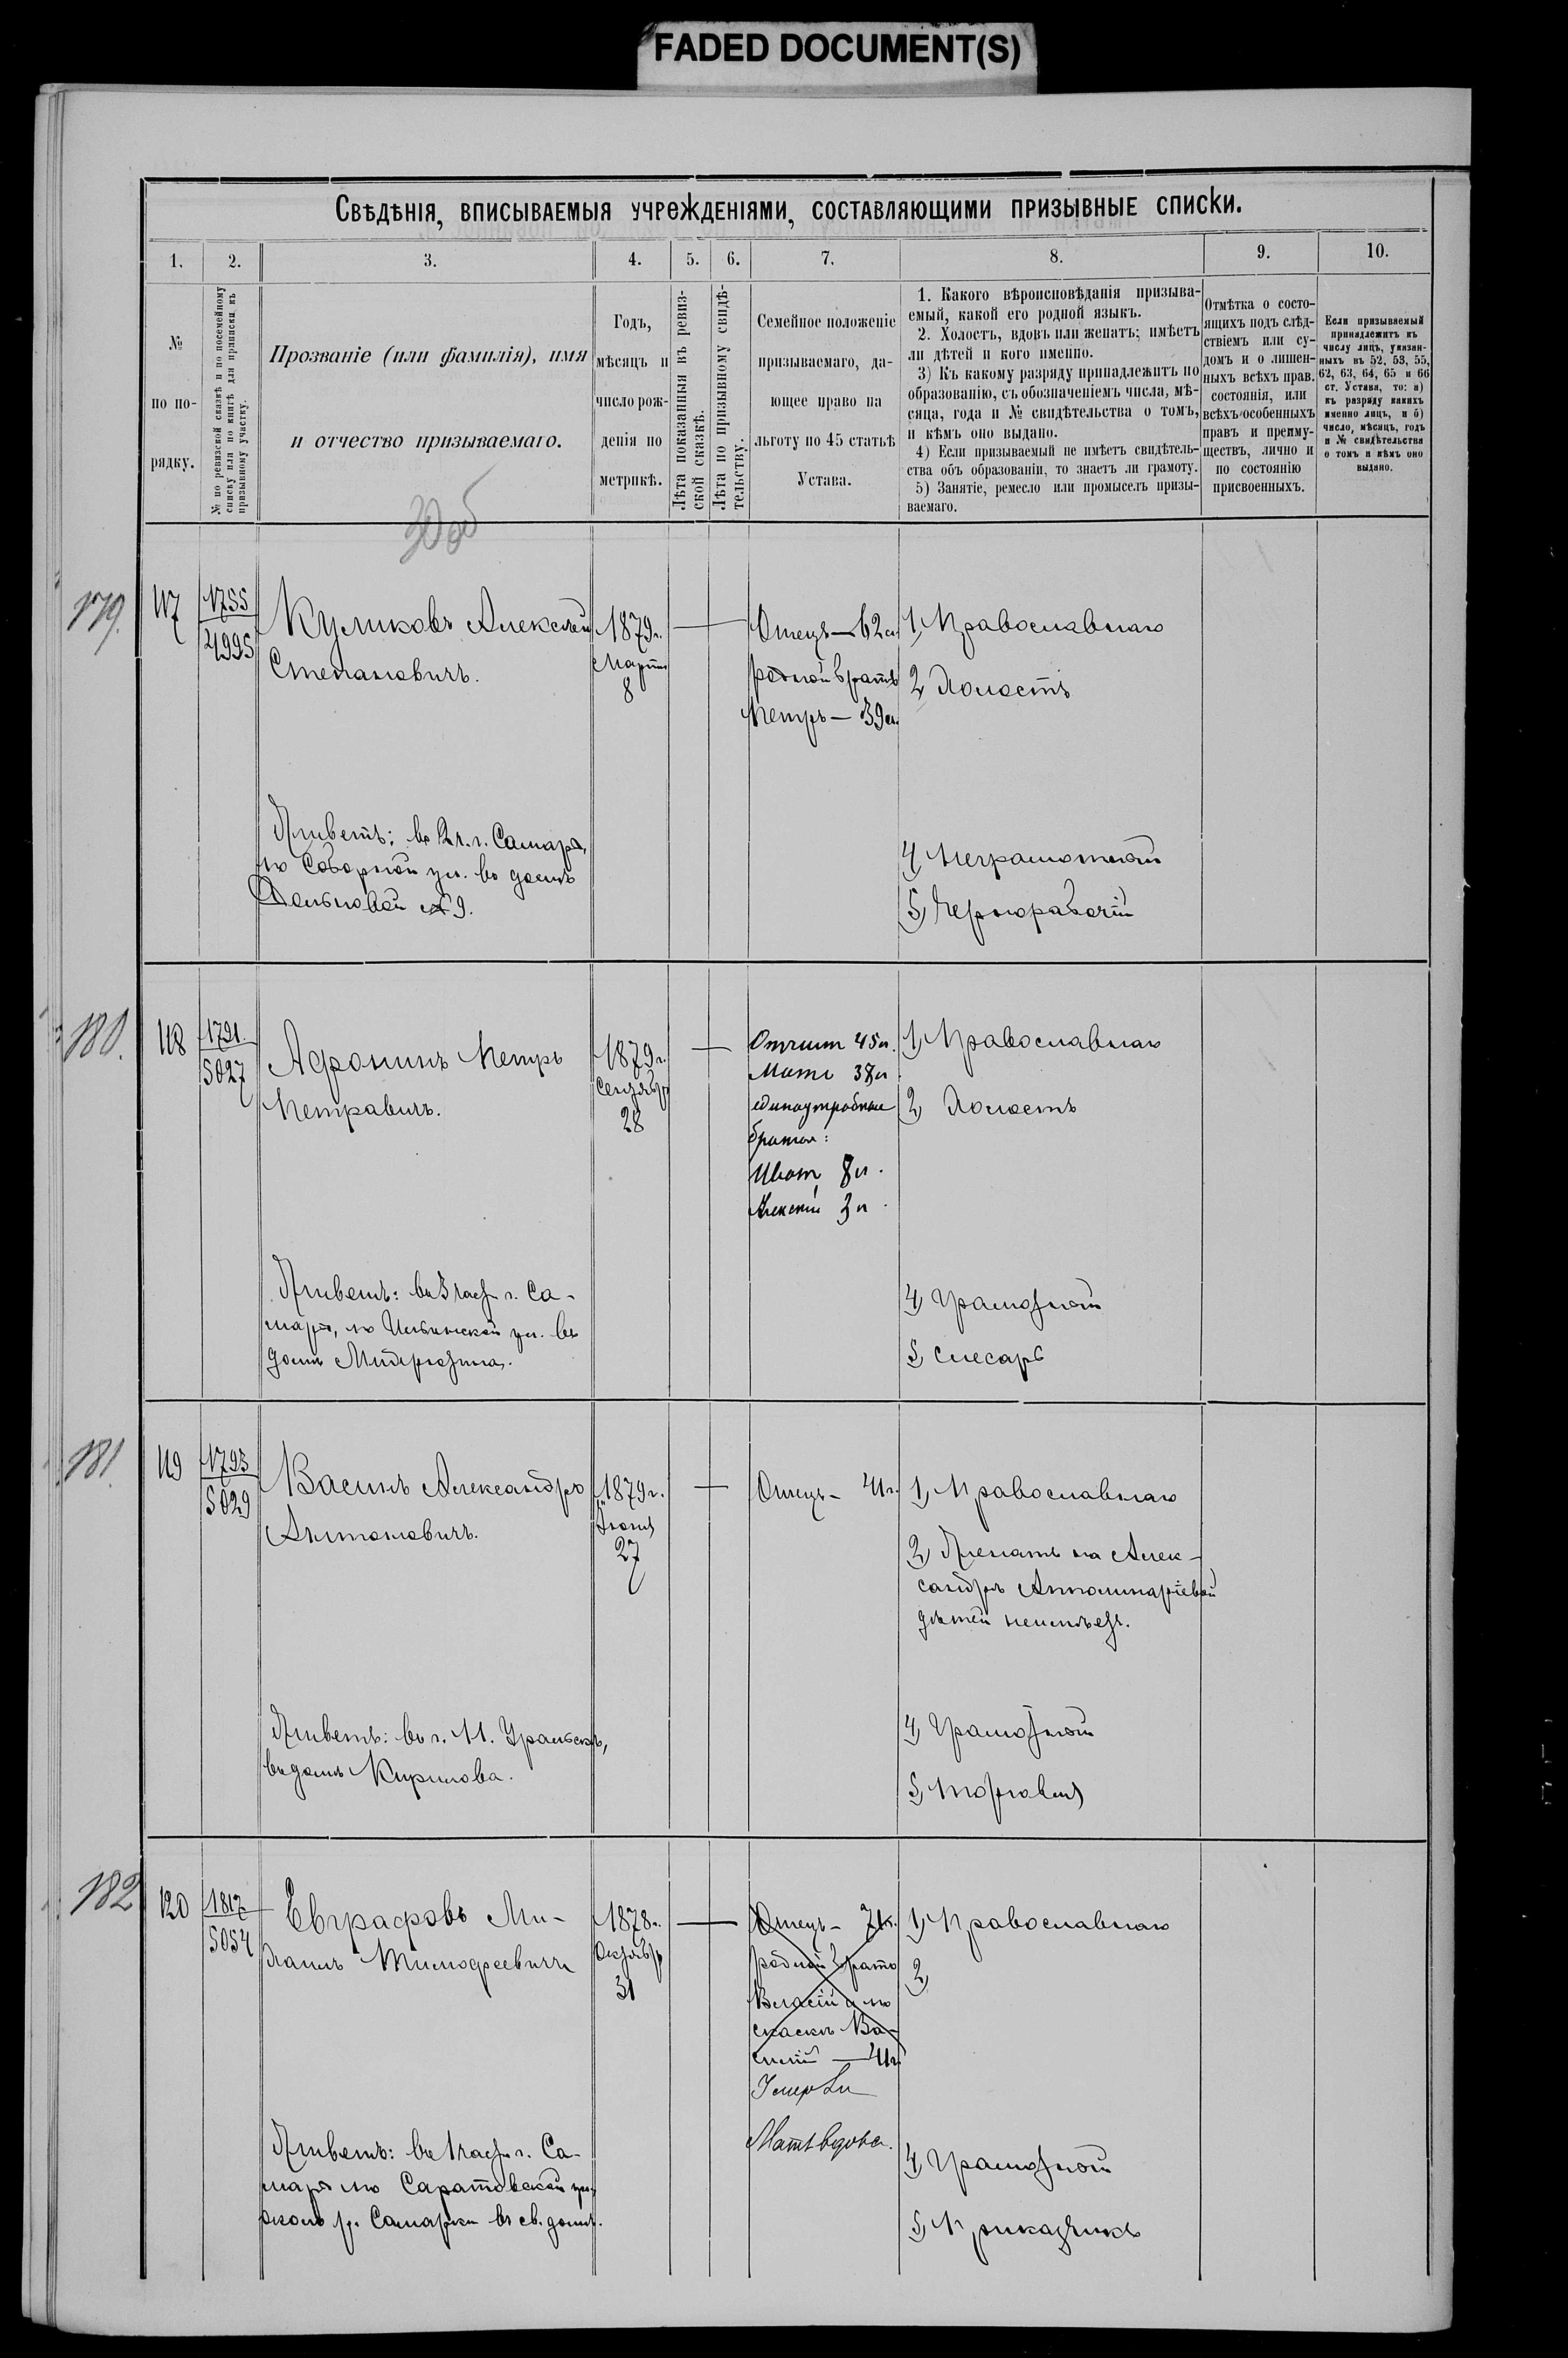 FADED DOCUMENT(S)
Свѣдѣнія, вписываемыя учрежденіями, составляющими призывные списки.
1. 2. 3. 4. 5. 6. 7. 8. 9. 10.
№
по по-
рядку.
№ по ревизской сказкѣ и по посемейному
списку или по книгѣ для приписки къ
призывному участку.
Прозваніе (или фамилія), имя
и отчество призываемаго.
Годъ,
мѣсяцъ и
число рож-
денія по
метрикѣ.
Лѣта показанныя въ ревиз-
ской сказкѣ.
Лѣта по призывному свидѣ-
тельству.
Семейное положеніе
призываемаго, да-
ющее право на
льготу по 45 статьѣ
Устава.
1. Какого вѣроисповѣданія призыва-
емый, какой его родной языкъ.
2. Холостъ, вдовъ или женатъ; имѣетъ
ли дѣтей и кого именно.
3) Къ какому разряду принадлежитъ по
образованію, съ обозначеніемъ числа, мѣ-
сяца, года и № свидѣтельства о томъ,
и кѣмъ оно выдано.
4) Если призываемый не имѣетъ свидѣтель-
ства объ образованіи, то знаетъ ли грамоту.
5) Занятіе, ремесло или промыселъ призы-
ваемаго.
Отмѣтка о состо-
ящихъ подъ слѣд-
ствіемъ или су-
домъ и о лишен-
ныхъ всѣхъ прав.
состоянія, или
всѣхъ особенныхъ
правъ и преиму-
ществъ, лично и
по состоянію
присвоенныхъ.
Если призываемый
принадлежитъ къ
числу лицъ, указан-
ныхъ въ 52, 53, 55,
62, 63, 64, 65 и 66
ст. Устава, то: а)
къ разряду какихъ
именно лицъ, и б)
число, мѣсяцъ, годъ
и № свидѣтельства
о томъ и кѣмъ оно
выдано.
179.
117
1755
4995
Куликовъ Алексѣй
Степановичъ.
Живетъ: во 2 ч. г. Самары,
по Соборной ул. въ домѣ
№ 9.
1879 г.
Марта
8
Отецъ — 62 л.
родной братъ
Петръ — 39 л.
1, Православнаго
2, Холостъ
4, Неграмотной
5, Чернорабочій
180.
118
1791.
5027
Афонинъ Петръ
Петравичъ.
Живетъ: въ 3 част. г. Са-
мары, по Ильинской ул. въ
домѣ
1879 г.
Сентябр.
28
Отчим 45 л.
Мать 38 л.
единоутробные
братья:
Иван 8 л.
Алексѣй 3 л.
1, Православнаго
2, Холостъ
4, Грамотной
5, Слесарь
181
119
1793
5029
Васинъ Александръ
Антоновичъ.
Живетъ: въ г. Н. Уральскѣ,
въ домѣ Кирилова.
1879 г.
27
Отецъ — 41 г.
1, Православнаго
2, Женатъ на Алек-
сандрѣ Апполинаріевой
дѣтей неимѣетъ.
4, Грамотной
5, Торговля
182
120
1817
5054
Евграфовъ Ми-
хаилъ Тимофеевичъ
Живетъ: въ 1 част. г. Са-
мары по Саратовской ул.
около р. Самарки въ св. домѣ.
1878 г.
Октябр.
31
Отецъ — 71 г.
родной братъ
Власій а по
сказкѣ Ва-
силій — 41 г.
Умерли
Мать вдова.
1, Православнаго
2,
4, Грамотной
5, Приказчикъ